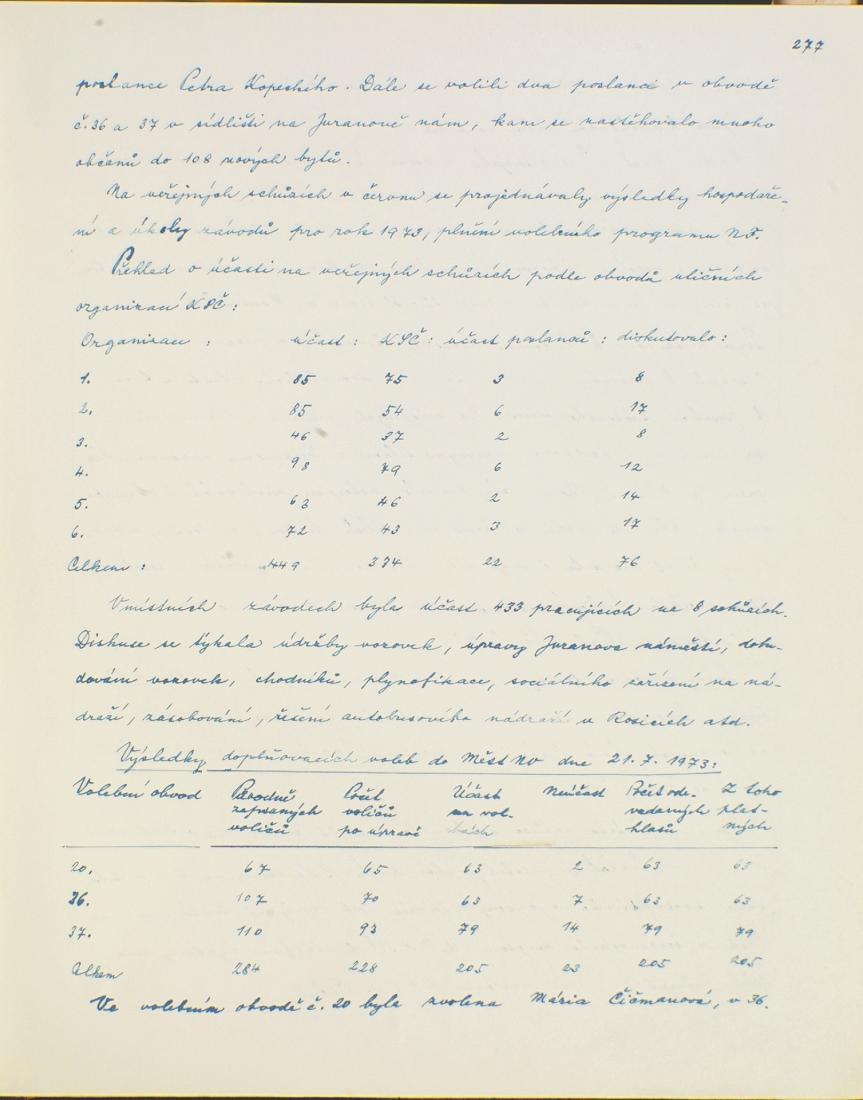 277
poslance Petra Kopeckého. Dále se volili dva poslanci v obvodě
č. 36 a 37 v sídlišti na Juranově nám, kam se nastěhovalo mnoho
občanů do 108 nových bytů.
Na veřejných schůzích v červnu se projednávaly výsledky hospodaře-
ní a úkoly závodů pro rok 1973, plnění volebního programu N.F.
Přehled o účasti na veřejných schůzích podle obvodů uličních
organizací KSČ:
Organizace : účast : KSČ : účast poslanců : diskutovalo :
1. 85 75 3 8
2. 85 54 6 17
3. 46 37 2 8
4. 98 79 6 12
5. 63 46 2 14
6. 72 43 3 17
Celkem : 449 334 22 76
V místních závodech byla účast 433 pracujících na 8 schůzích.
Diskuse se týkala údržby vozovek, úpravy Juranova náměstí, dobu-
dování vozovek, chodníků, plynofikace, sociálního zařízení na ná-
draží, zásobování, řešení autobusového nádraží v Rosicích atd.
Výsledky doplňovacích voleb do Měst NV dne 21.7. 1973:
Volební obvod Původně Počet Účast Neúčast Počet ode- Z toho
zapsaných voličů na vol- vzdaných plat-
voličů po úpravě bách hlasů ných
20. 67 65 63 2 63 63
36. 107 70 63 7 63 63
37. 110 93 79 14 79 79
Celkem 284 228 205 23 205 205
Ve volebním obvodě č. 20 byla zvolena Mária Čičmanová, v 36.